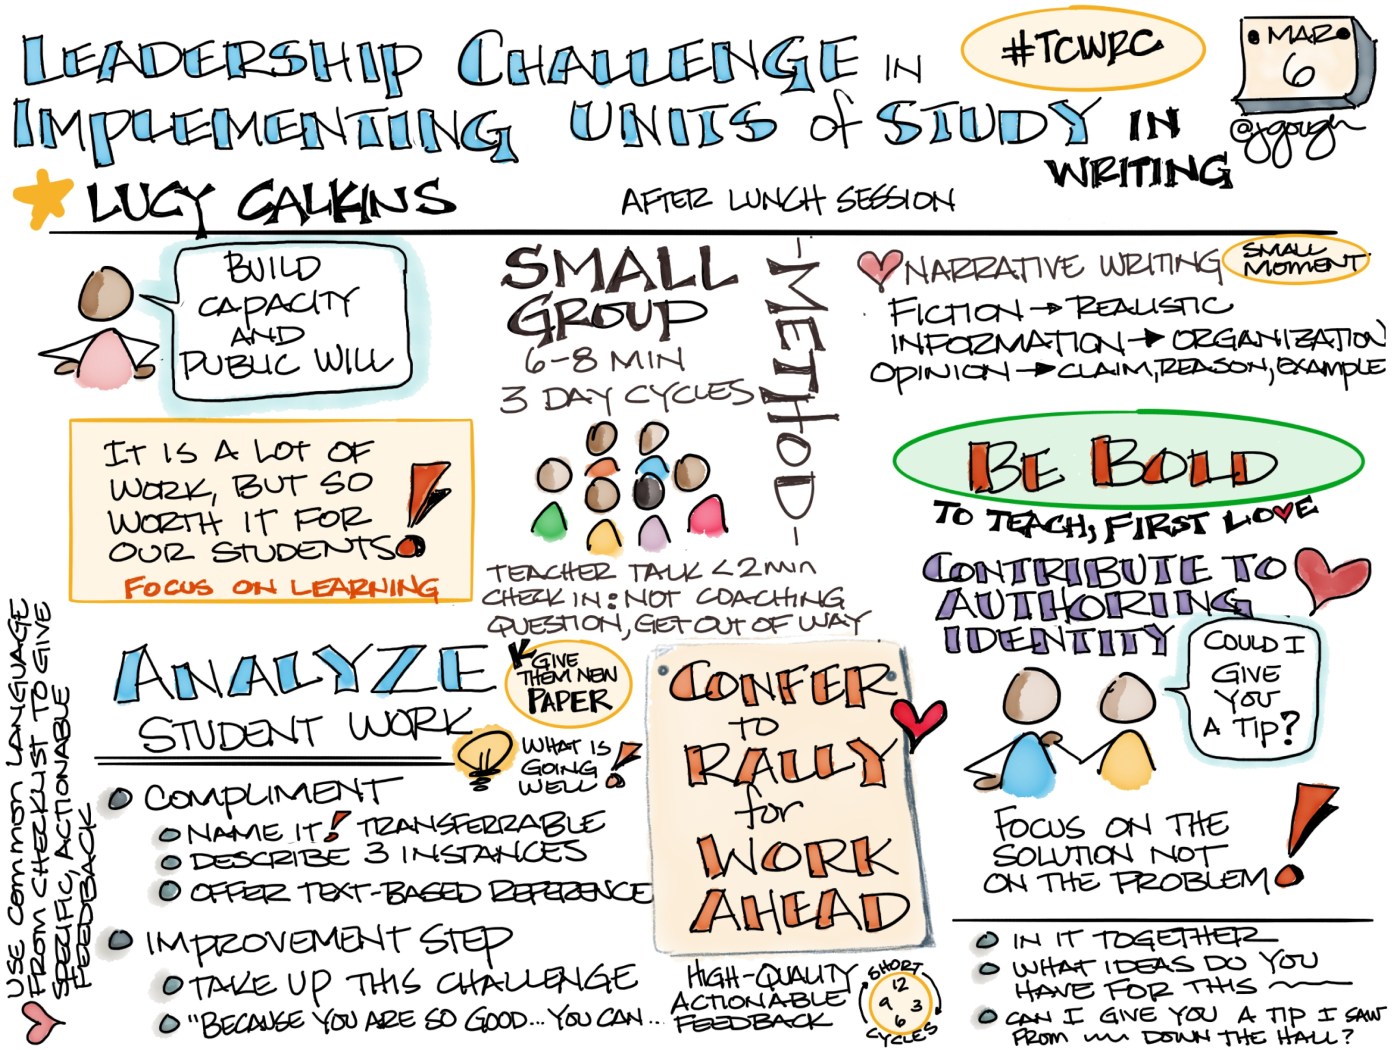 LEADERSHIP CHALLENGE IN
IMPLEMENTING UNITS of STUDY IN
WRITING
#TCWRC
MAR
6
@jgough
LUCY CALKINS
AFTER LUNCH SESSION
BUILD
CAPACITY
AND
PUBLIC WILL
IT IS A LOT OF
WORK, BUT SO
WORTH IT FOR
OUR STUDENTS!
FOCUS ON LEARNING
SMALL
GROUP
6-8 MIN
3 DAY CYCLES
-METHOD-
TEACHER TALK < 2 min
CHECK IN: NOT COACHING
QUESTION, GET OUT OF WAY
NARRATIVE WRITING
SMALL
MOMENT
FICTION → REALISTIC
INFORMATION → ORGANIZATION
OPINION → CLAIM, REASON, EXAMPLE
BE BOLD
TO TEACH, FIRST LOVE
CONTRIBUTE TO
AUTHORING
IDENTITY
COULD I
GIVE
YOU
A TIP?
FOCUS ON THE
SOLUTION NOT
ON THE PROBLEM!
IN IT TOGETHER
WHAT IDEAS DO YOU
HAVE FOR THIS
CAN I GIVE YOU A TIP I SAW
FROM DOWN THE HALL?
USE COMMON LANGUAGE
FROM CHECKLIST TO GIVE
SPECIFIC, ACTIONABLE
FEEDBACK
ANALYZE
STUDENT WORK
GIVE
THEM NEW
PAPER
WHAT IS
GOING
WELL!
COMPLIMENT
NAME IT! TRANSFERRABLE
DESCRIBE 3 INSTANCES
OFFER TEXT-BASED REFERENCE
IMPROVEMENT STEP
TAKE UP THIS CHALLENGE
"BECAUSE YOU ARE SO GOOD... YOU CAN...
CONFER
TO
RALLY
for
WORK
AHEAD
HIGH-QUALITY
ACTIONABLE
FEEDBACK
SHORT
12
9 3
6
CYCLES